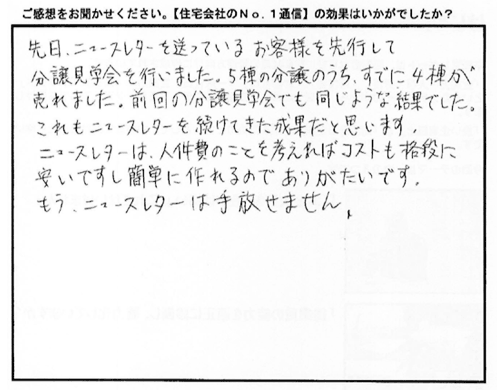 ご感想をお聞かせください。【住宅会社のNo.1通信】の効果はいかがでしたか?
先日、ニュースレターを送っているお客様を先行して
分譲見学会を行いました。5棟の分譲のうち、すでに4棟が
売れました。前回の分譲見学会でも同じような結果でした。
これもニュースレターを続けてきた成果だと思います。
ニュースレターは、人件費のことを考えればコストも格段に
安いですし簡単に作れるのでありがたいです。
もう、ニュースレターは手放せません。